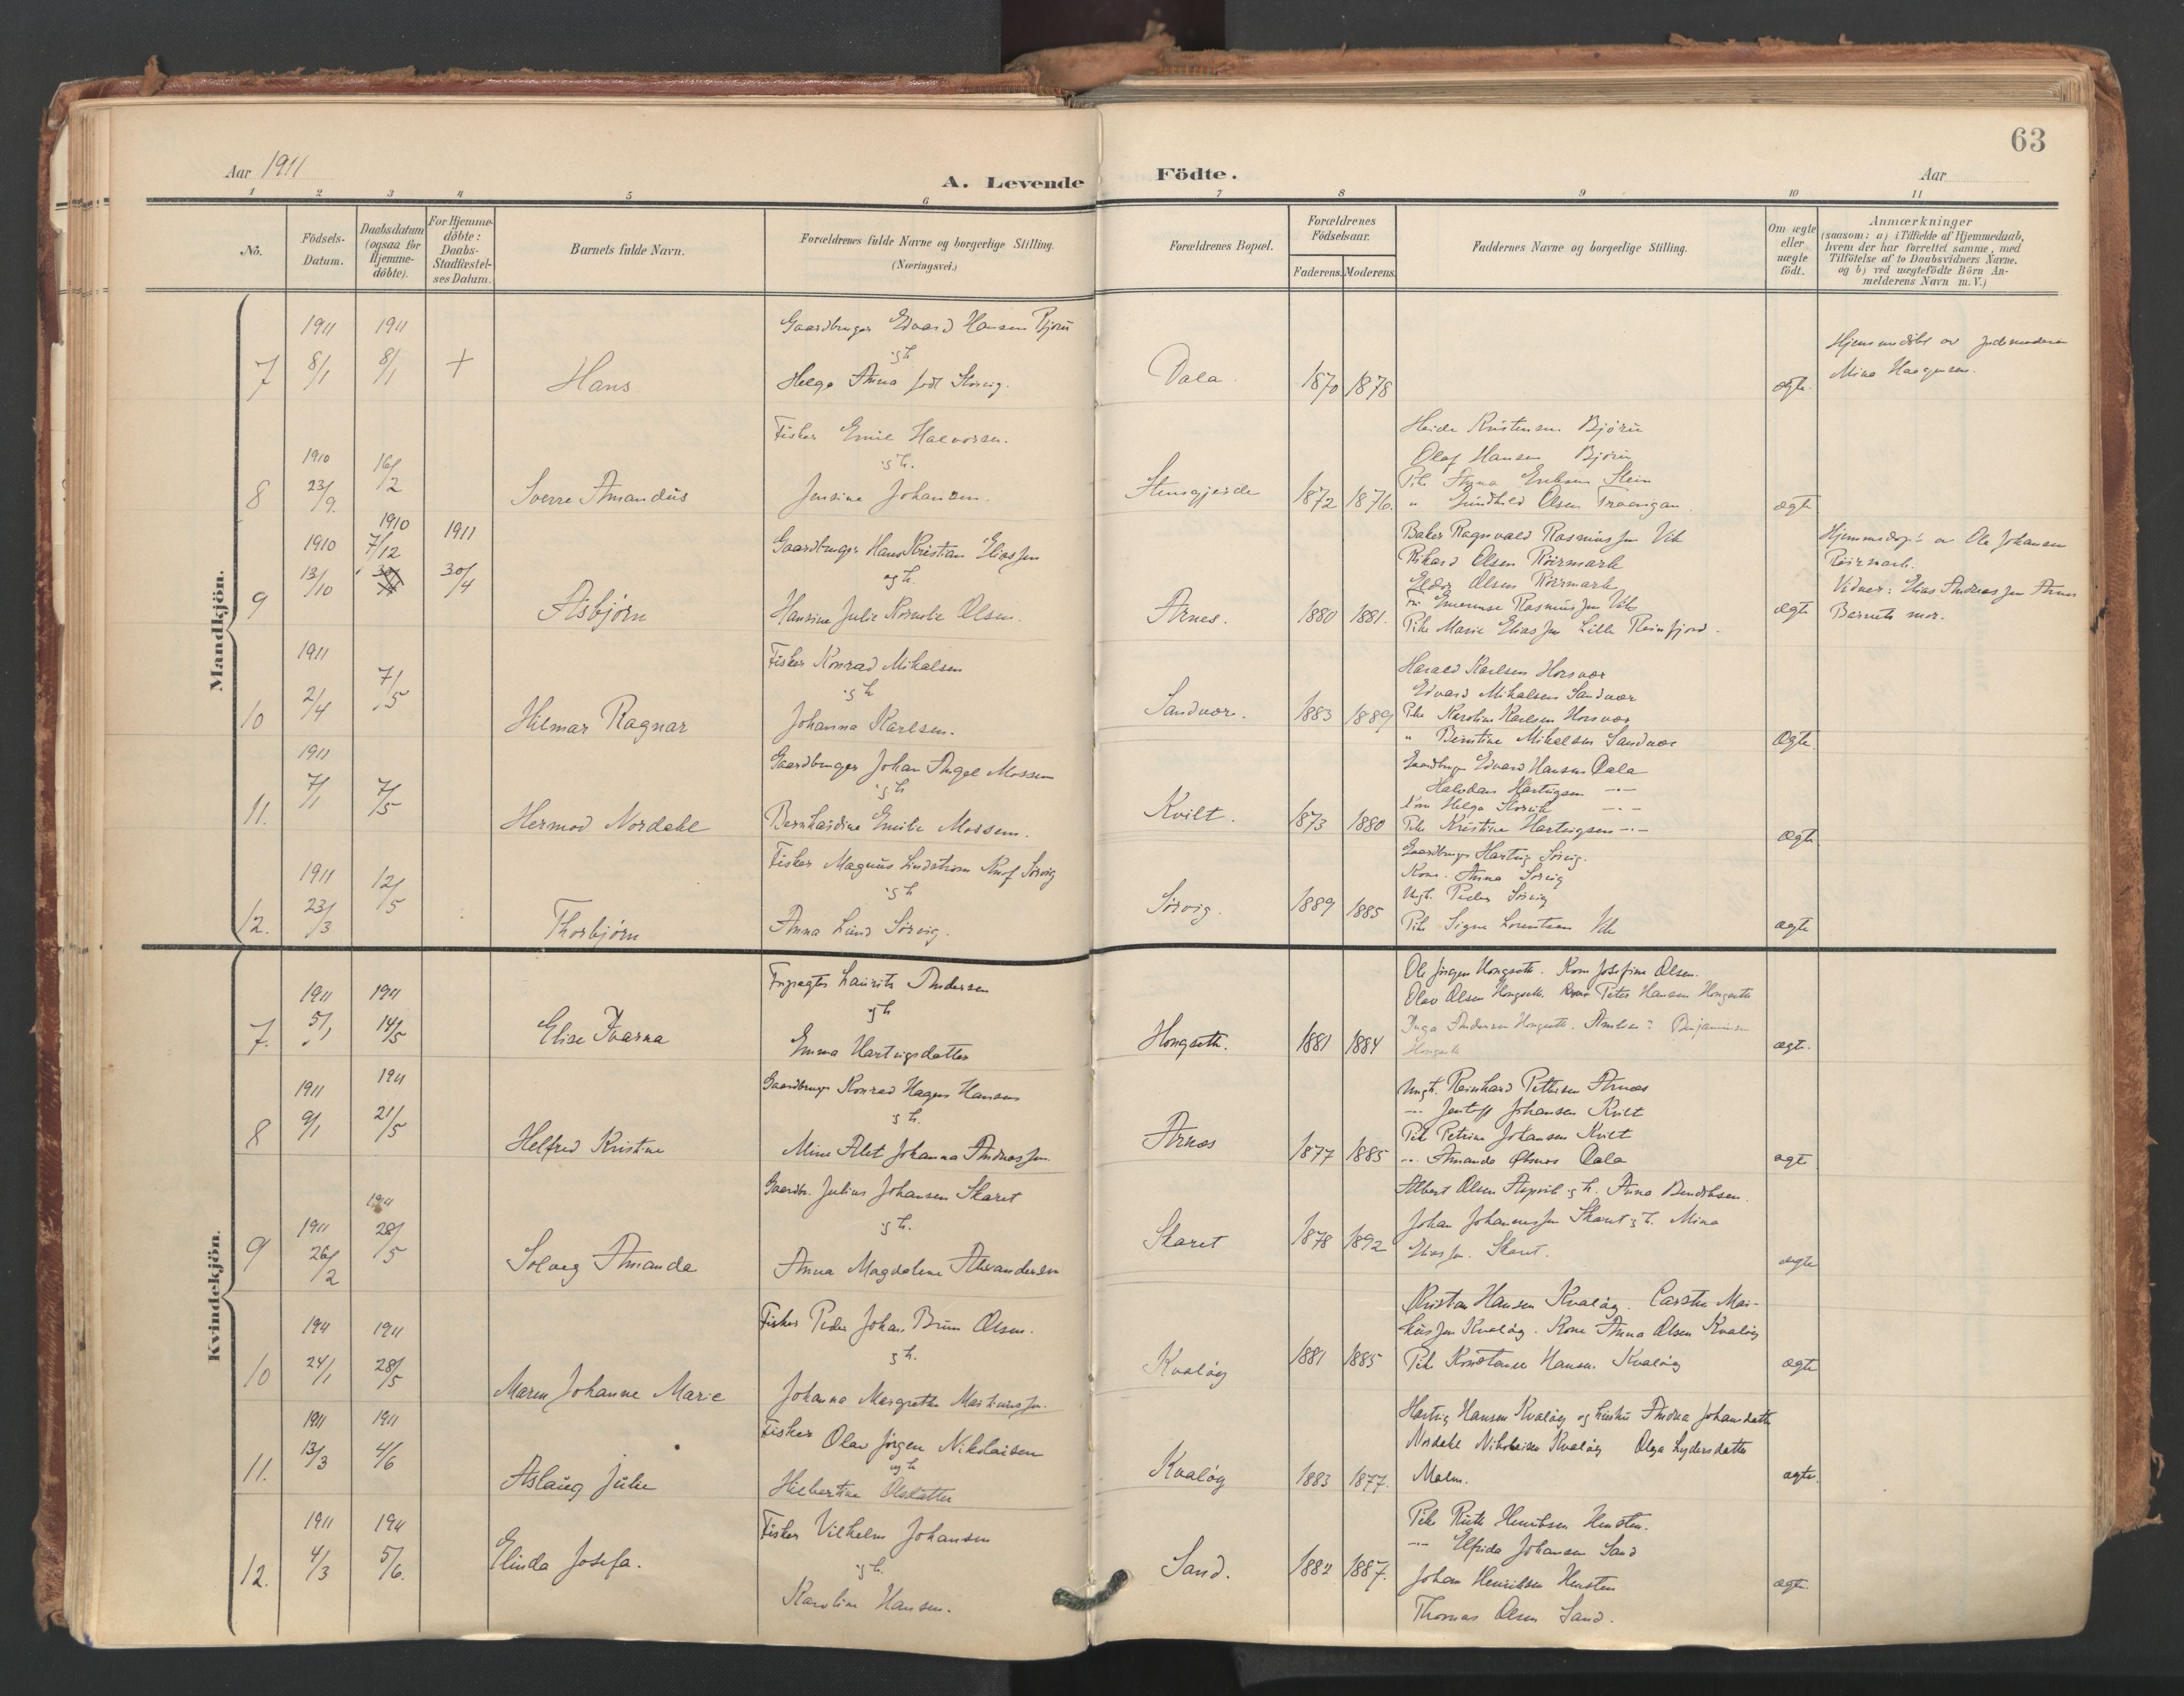 63
Aar 1911
A. Levende Födte.
Aar
1 2 3 4 5 6 7 8 9 10 11
No.
Födsels-
Datum.
Daabsdatum
(ogsaa for
Hjemme-
döbte).
For Hjemme-
döbte:
Daabs-
Stadfæstel-
ses Datum.
Barnets fulde Navn.
Forældrenes fulde Navne og borgerlige Stilling.
(Næringsvei.)
Forældrenes Bopæl.
Forældrenes
Födselsaar.
Faderens. Moderens.
Faddernes Navne og borgerlige Stilling.
Om ægte
eller
uægte
födt.
Anmærkninger
(saasom: a) i Tilfælde af Hjemmedaab,
hvem der har forrettet samme, med
Tilföielse af to Daabsvidners Navne,
og b) ved uægtefödte Börn An-
melderens Navn m. V.)
Mandkjön.
7
1911 8/1
1911 8/1
+
Hans
Gaardbruger Edvard Hansen
og h.
Helga Anna født
Dala.
1870 1878
ægte.
Hjemmedøbt av
Mina
8
1910 23/9.
16/2
Sverre Amandus
Fisker Emil Halvorsen.
og h.
Jensine Johansen.
Stensgjerde
1872 1876.
Kristensen
Olaf Hansen
Pike Eriksen Stein
" Olsen
ægte
9
1910 13/10
1910 7/12
1911 30/4
Asbjørn
Gaardbruger Hans Kristian Eliassen
og h.
Hansine Julie Olsen.
Arnes.
1880 1881.
Baker Ragnvald Rasmussen Vik
Rikard Olsen Röirmark
Olsen Röirmark
Rasmussen Vik
Pike Marie Eliassen Lille Reinfjord.
ægte
Hjemmedøpt av Ole Johansen
Röirmark.
Vidner: Elias Andreassen Arnes
Barnets mor.
10
1911 2/4
7/5
Hilmar Ragnar
Fisker Konrad Mikalsen
og h
Johanna Karlsen.
Sandvær.
1883 1889
Harald Karlsen Horsvær
Edvard Mikalsen Sandvær
Pike Karoline Karlsen Horsvær
" Mikalsen Sandvær
Ægte
11.
1911 7/1
7/5
Hermod Nordahl
Gaardbruger Johan Angel Mossem
og h
Bernhardine Emilie Mossem.
Kvilt.
1873 1880
Gaardbruger Edvard Hansen Dala
Halvdan Hartvigsen -"-
Helga -"-
Pike Kristine Hartvigsen -"-
ægte
12.
1911 23/3
12/5
Thorbjørn
Fisker Magnus Lindstrøm Sörvig
og h
Anna Lund Sörvig.
Sörvig.
1889 1885
Gaardbruger Hartvig Sörvig.
Kone. Anna Sörvig
Ungk. Peder Sörvig
Pike Signe Lorentsen
ægte
Kvindekjön.
7.
1911 5/1
1911 14/5
Elise Ivarna
Laurits Andersen
og h
Emma Hartvigsdatter
Hongseth.
1881 1884
Ole Jörgen Hongseth. Kone Josefine Olsen.
Olav Olsen Hongseth. Peter Hansen Hongseth
Inga Andersen Hongseth. Benjaminsen
Hongseth
ægte.
8
1911 9/1
1911 21/5
Helfred Kristine
Gaardbruger Konrad Hagen Hansen
og h.
Mine Alet Johanna Andreassen
Arnes
1877 1885
Ungk. Reinhard Pettersen Arnes
-"- Jentoft Johansen Kvilt
Pike Petrine Johansen Kvilt
-"- Amanda Dala
ægte
9
1911 26/2
1911 28/5
Solveg Amanda
Gaardbr. Julius Johansen Skaret
og h.
Anna Magdalene Alexandersen
Skaret
1878 1892
Albert Olsen og h. Anna Bendiksen.
Johan Johannessen Skaret og h. Mina
Eliassen. Skaret.
ægte
10
1911 24/1
1911 28/5
Maren Johanne Marie
Fisker Peder Johan Brun Olsen.
og h.
Johanna Margrethe Markussen.
Kvalöy
1881 1885
Kristian Hansen Kvalöy. Carsten Mar-
kussen Kvalöy. Kone Anna Olsen Kvalöy
Pike Konstanse Hansen. Kvalöy
ægte
11.
1911 13/3
1911 4/6
Aslaug Julie
Fisker Olav Jörgen Nikolaisen
og h
Hilbertine Olsdatter
Kvalöy
1883 1877.
Hartvig Hansen Kvalöy og hustru Andrea Johansdatter
Nordahl Nikolaisen Kvalöy Olga Lydersdatter
Malm.
ægte.
12.
1911 4/3
1911 5/6.
Elinda Josefa.
Fisker Vilhelm Johansen
og h.
Karoline Hansen.
Sand.
1882 1887.
Pike Ruth Henriksen
-"- Elfrida Johansen Sand
Johan Henriksen
Thomas Olsen Sand.
ægte.